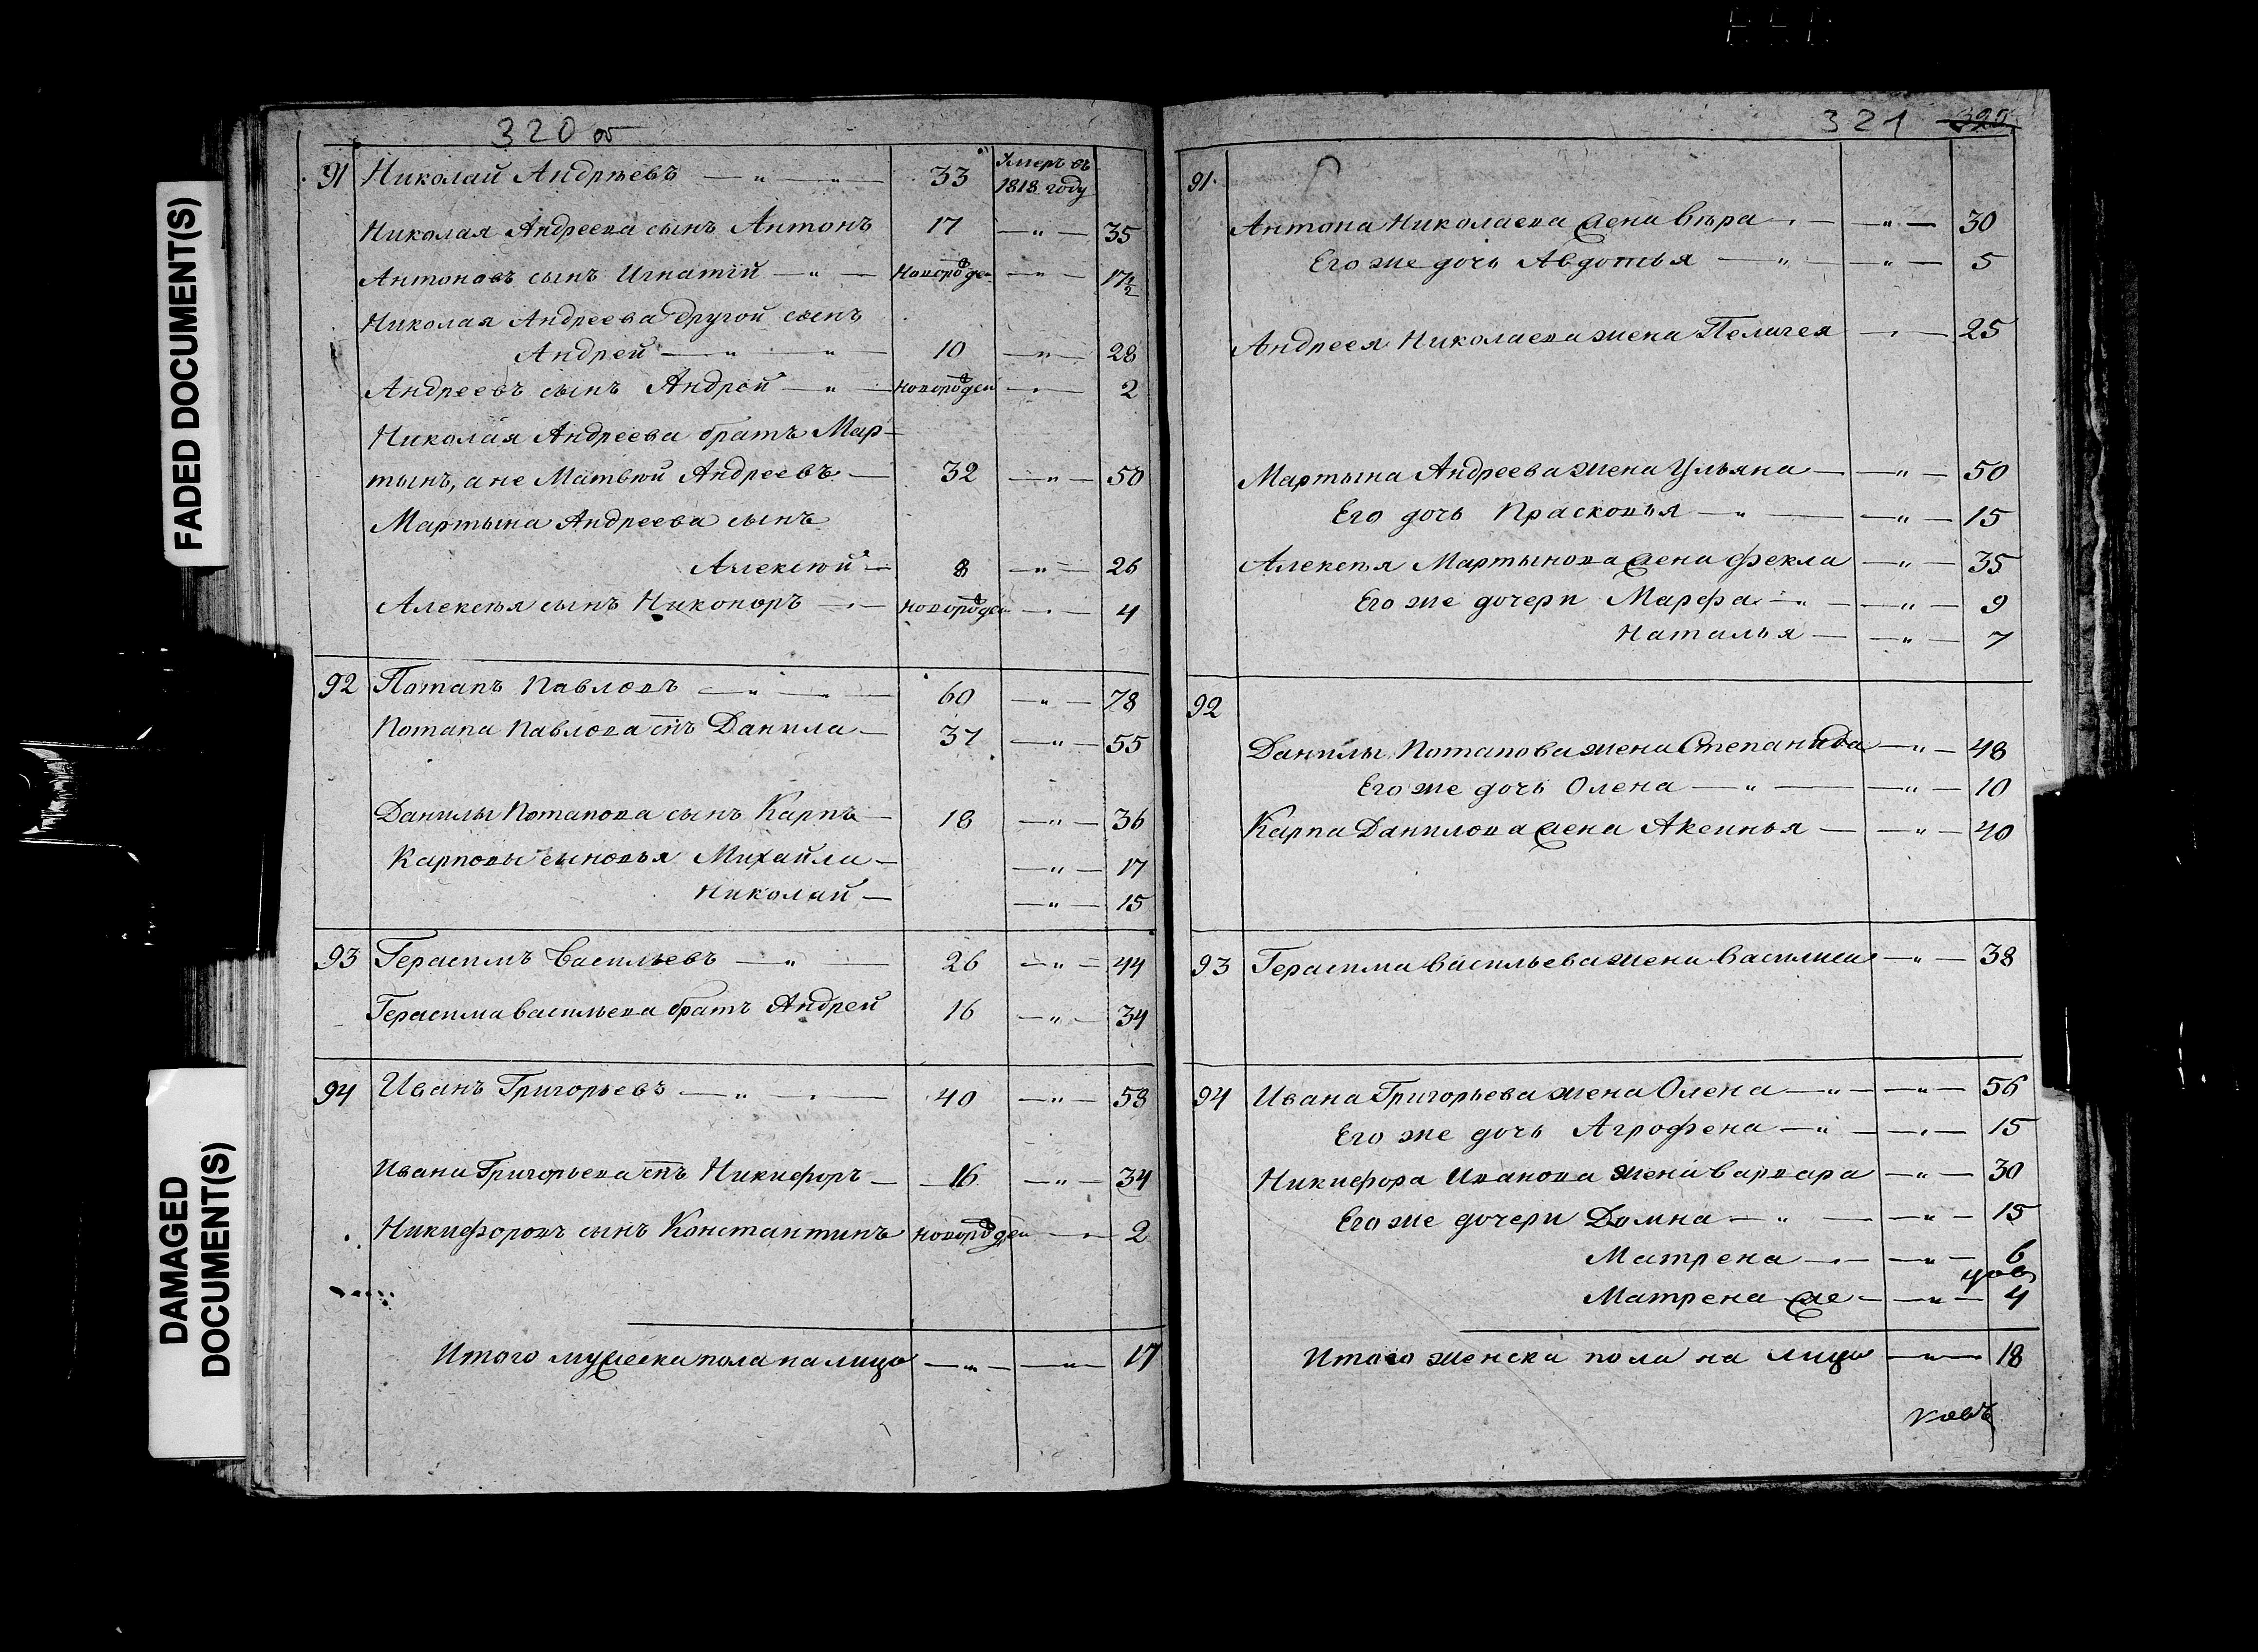 FADED DOCUMENT(S)
DAMAGED
DOCUMENT(S)
320 об
91 Николай Андрѣевъ — " — " — 33 Умеръ въ
1818 году
Николая Андреева сынъ Антонъ 17 — " — 35
Антоновъ сынъ Игнатій — " — новорожден — " — 17½
Николая Андреева другой сынъ
Андрей — " — " — 10 — " — 28
Андреевъ сынъ Андрей — " — новорожден — " — 2
Николая Андреева братъ Мар-
тынъ, а не Матвѣй Андреевъ — 32 — " — 50
Мартына Андреева сынъ
Алексѣй — 8 — " — 26
Алексѣя сынъ Никоноръ — " — новорожден — " — 4
92 Потапъ Павловъ — " — " — 60 — " — 78
Потапа Павлова снъ Данила — 37 — " — 55
Данилы Потапова сынъ Карпъ — 18 — " — 36
Карповы сыновья Михайла — — " — 17
Николай — — " — 15
93 Герасимъ Васильевъ — " — 26 — " — 44
Герасима Васильева братъ Андрей 16 — " — 34
94 Иванъ Григорьевъ — " — " — 40 — " — 58
Ивана Григорьева снъ Никифоръ — 16 — " — 34
Никифоровъ сынъ Константинъ новорожден — " — 2
Итого мужеска пола на лицо — " — — " — 17
321 320
91
Антона Николаева жена Вѣра — " — — " — 30
Его же дочь Авдотья — " — — " — 5
Андрея Николаева жена Пелагея — " — 25
Мартына Андреева жена Ульяна — — " — 50
Его дочь Прасковья — " — — " — 15
Алексѣя Мартынова жена Фекла — " — 35
Его же дочери Марфа — " — — " — 9
Наталья — — " — 7
92
Данилы Потапова жена Степанида — " — 48
Его же дочь Олена — " — — " — 10
Карпа Данилова жена Аксинья — — " — 40
93 Герасима Васильева жена Василиса — " — 38
94 Ивана Григорьева жена Олена — " — — " — 56
Его же дочь Агрофена — " — — " — 15
Никифора Иванова жена Варвара — " — 30
Его же дочери Домна — " — — " — 15
Матрена — " — — " — 6
Матрена же — — " — 4
Итого женска пола на лицо — " — 18